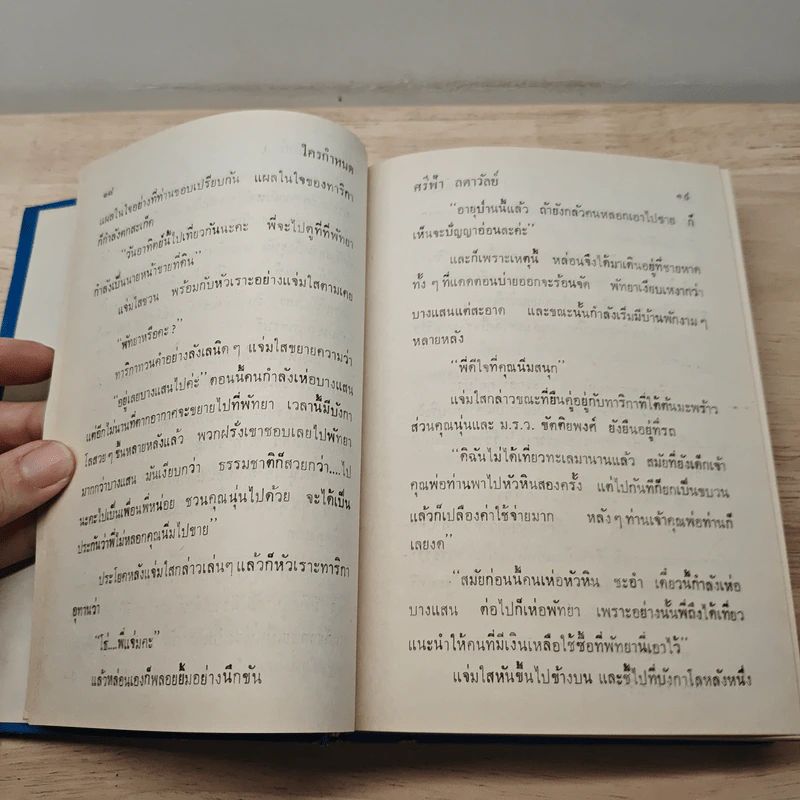 ๑๘
ใครกำหนด
แผลในใจอย่างที่ท่านชอบเปรียบกัน แผลในใจของทาริกา
ก็กำลังตกสะเก็ด
"วันอาทิตย์นี้ไปเที่ยวกันนะคะ พี่จะไปดูที่ที่พัทยา
กำลังเป็นนายหน้าขายที่ดิน"
แจ่มใสชวน พร้อมกับหัวเราะอย่างแจ่มใสตามเคย
"พัทยาหรือคะ?"
ทาริกาทวนคำอย่างลังเลนิดๆ แจ่มใสขยายความว่า
"อยู่เลยบางแสนไปค่ะ" ตอนนี้คนกำลังเห่อบางแสน
แต่อีกไม่นานที่ตากอากาศจะขยายไปที่พัทยา เวลานี้มีบังกา
โลสวยๆ ขึ้นหลายหลังแล้ว พวกฝรั่งเขาชอบเลยไปพัทยา
มากกว่าบางแสน มันเงียบกว่า ธรรมชาติก็สวยกว่า....ไป
นะคะไปเป็นเพื่อนพี่หน่อย ชวนคุณนุ่นไปด้วย จะได้เป็น
ประกันว่าพี่ไม่หลอกคุณนิ่มไปขาย"
ประโยคหลังแจ่มใสกล่าวเล่นๆ แล้วก็หัวเราะทาริกา
อุทานว่า
"โธ่....พี่แจ่มคะ"
แล้วหล่อนเองก็พลอยยิ้มอย่างนึกขัน
ศรีฟ้า ลดาวัลย์
๑๙
"อายุป่านนี้แล้ว ถ้ายังกลัวคนหลอกเอาไปขาย ก็
เห็นจะปัญญาอ่อนละค่ะ"
และก็เพราะเหตุนี้ หล่อนจึงได้มาเดินอยู่ที่ชายหาด
ทั้งๆ ที่แดดตอนบ่ายออกจะร้อนจัด พัทยาเงียบเหงากว่า
บางแสนแต่สะอาด และขณะนั้นกำลังเริ่มมีบ้านพักงามๆ
หลายหลัง
"พี่ดีใจที่คุณนิ่มสนุก"
แจ่มใสกล่าวขณะที่ยืนคู่อยู่กับทาริกาที่ใต้ต้นมะพร้าว
ส่วนคุณนุ่นและ ม.ร.ว. ขัตติยพงศ์ ยังยืนอยู่ที่รถ
"ดิฉันไม่ได้เที่ยวทะเลมานานแล้ว สมัยที่ยังเด็กเจ้า
คุณพ่อท่านพาไปหัวหินสองครั้ง แต่ไปกันทีก็ยกเป็นขบวน
แล้วก็เปลืองค่าใช้จ่ายมาก หลังๆ ท่านเจ้าคุณพ่อท่านก็
เลยงด"
"สมัยก่อนนี้คนเห่อหัวหิน ชะอำ เดี๋ยวนี้กำลังเห่อ
บางแสน ต่อไปก็เห่อพัทยา เพราะอย่างนั้นพี่ถึงได้เที่ยว
แนะนำให้คนที่มีเงินเหลือใช้ซื้อที่พัทยานี่เอาไว้"
แจ่มใสหันขึ้นไปข้างบน และชี้ไปที่บังกาโลหลังหนึ่ง